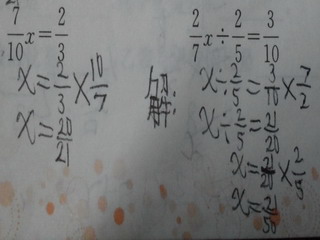 7/10 x = 2/3
x = 2/3 × 10/7
x = 20/21
2/7 x ÷ 2/5 = 3/10
解: x ÷ 2/5 = 3/10 × 7/2
x ÷ 2/5 = 21/20
x = 21/20 × 2/5
x = 21/50